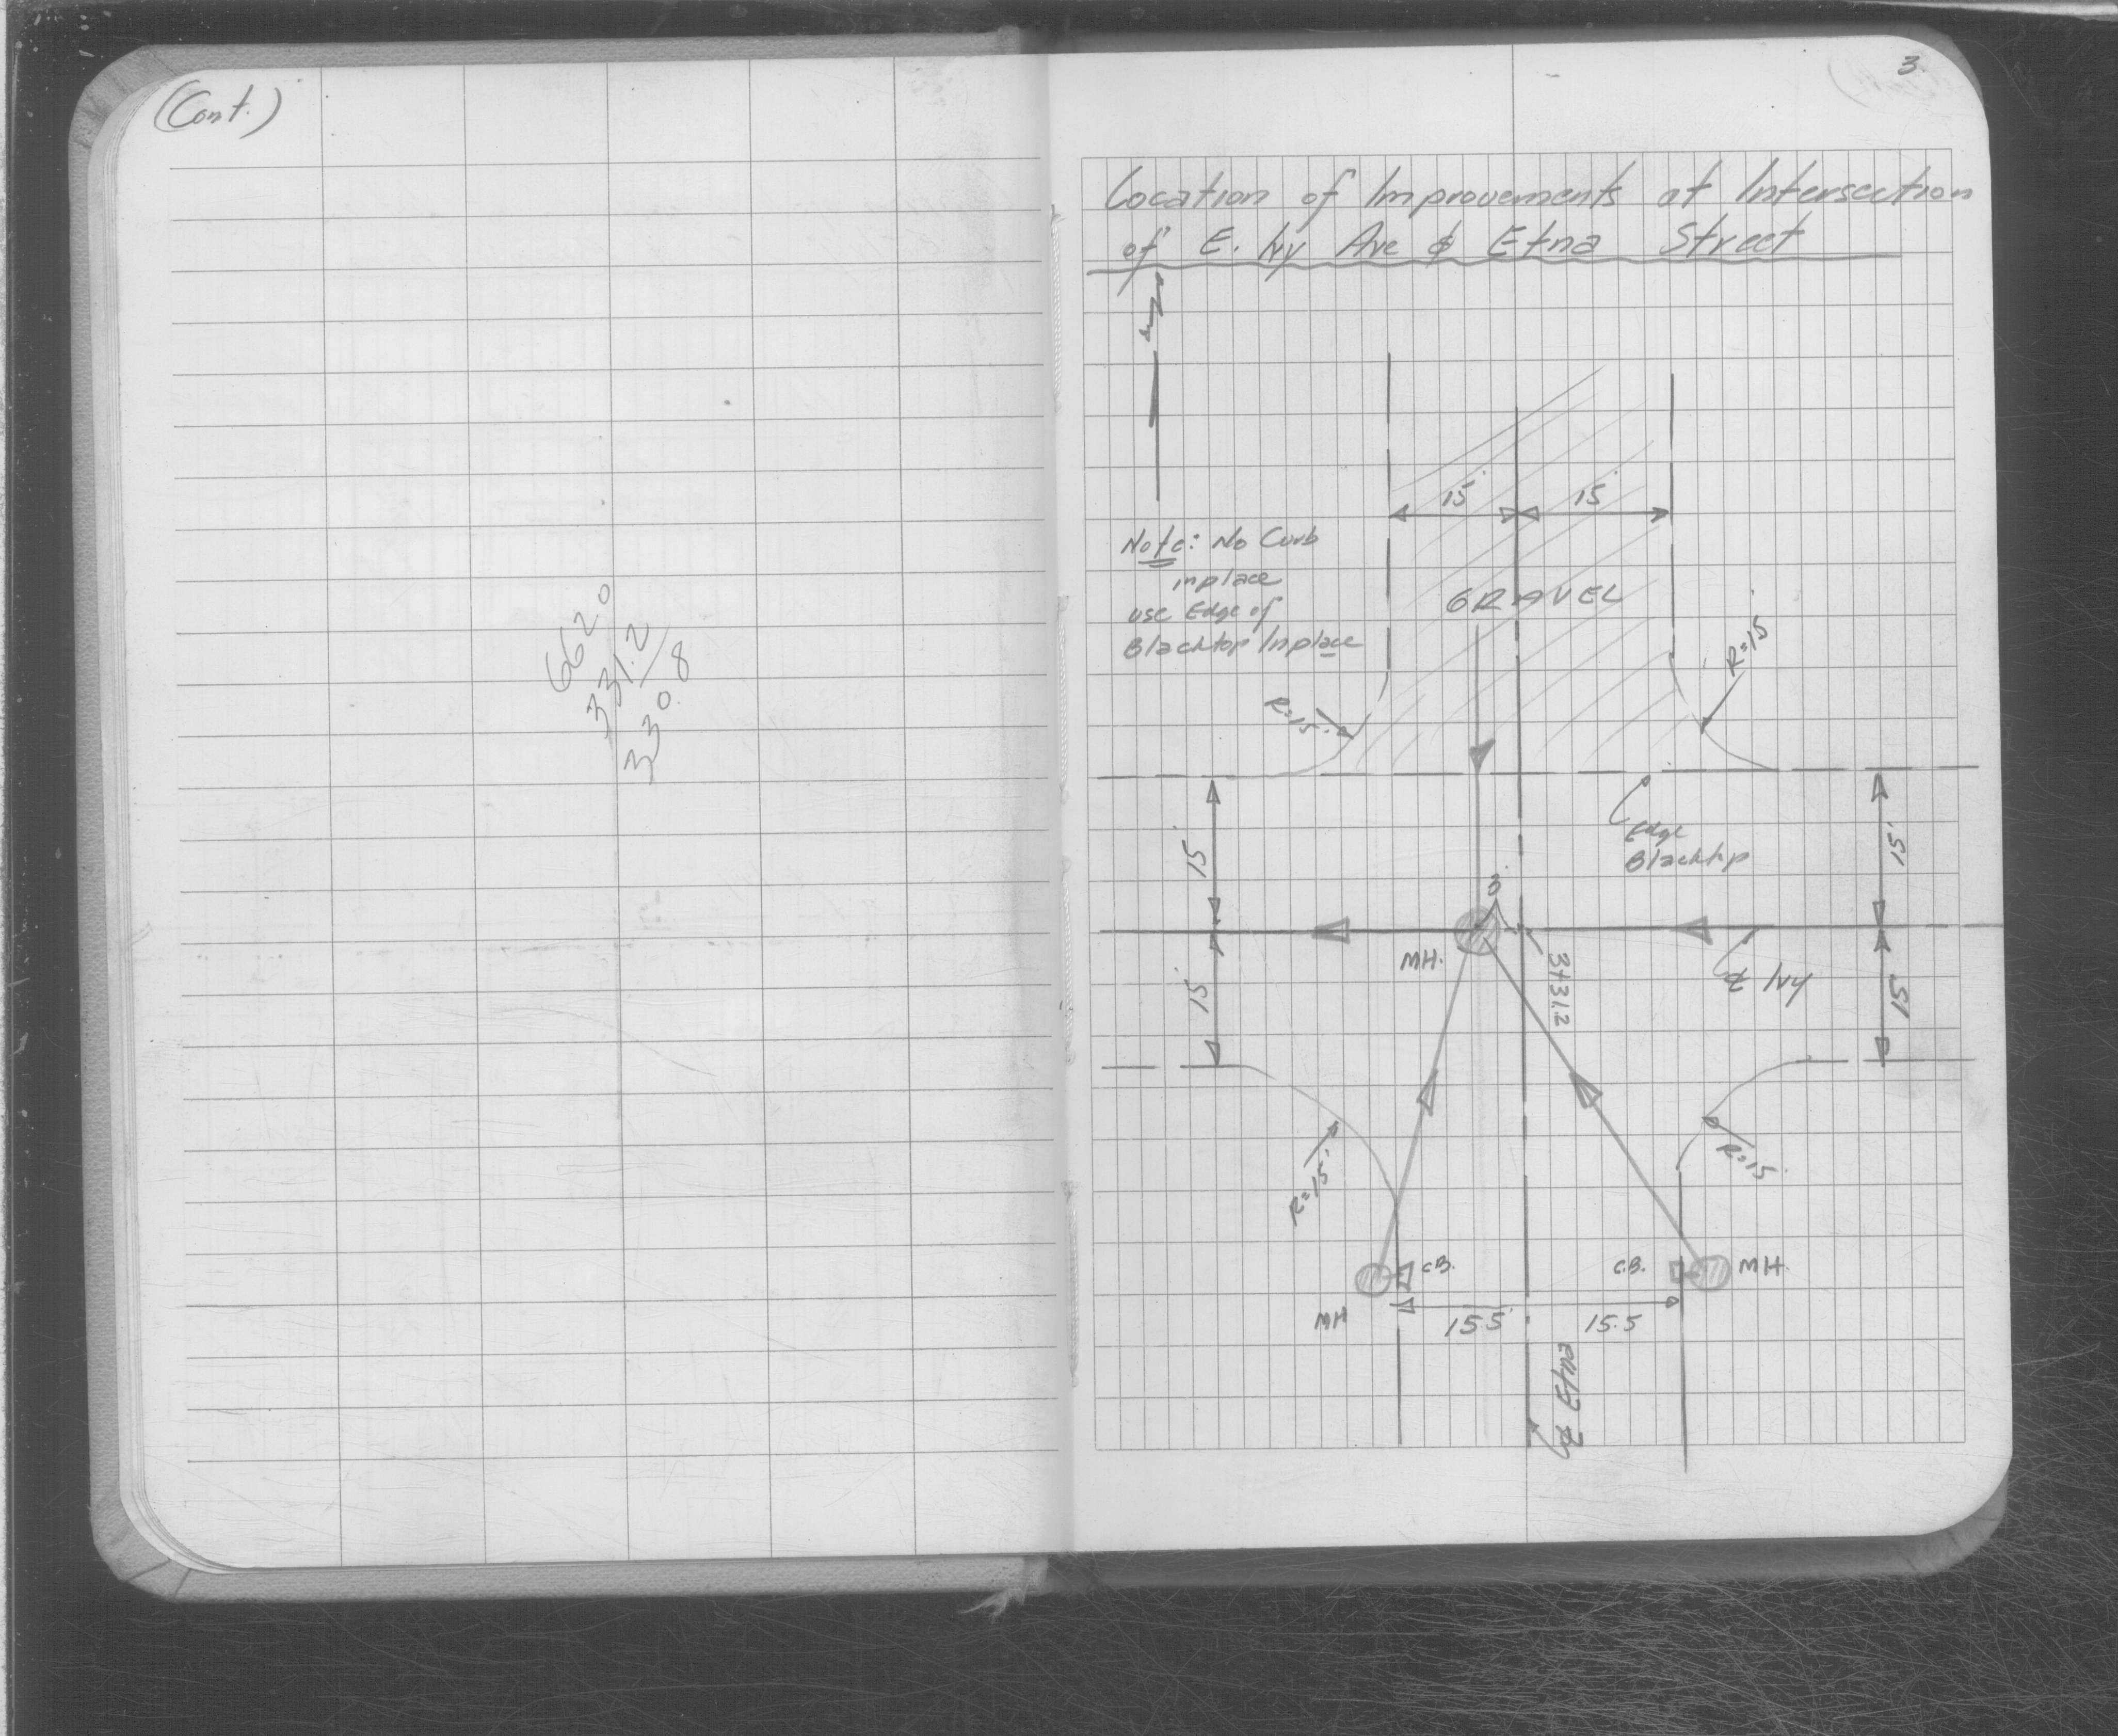 (Cont.)
662.0
331.2
330.8
3
Location of Improvements at Intersection
of E. Ivy Ave & Etna Street
15' 15'
Note: No Curb
inplace
use Edge of
Blacktop Inplace
GRAVEL
R=15'
R=15'
Edge
Blacktop
15'
15'
3'
MH.
3+31.2
℄ Ivy
15'
15'
R=15'
R=15'
C.B.
C.B.
MH.
MH
15.5' 15.5
℄ Etna